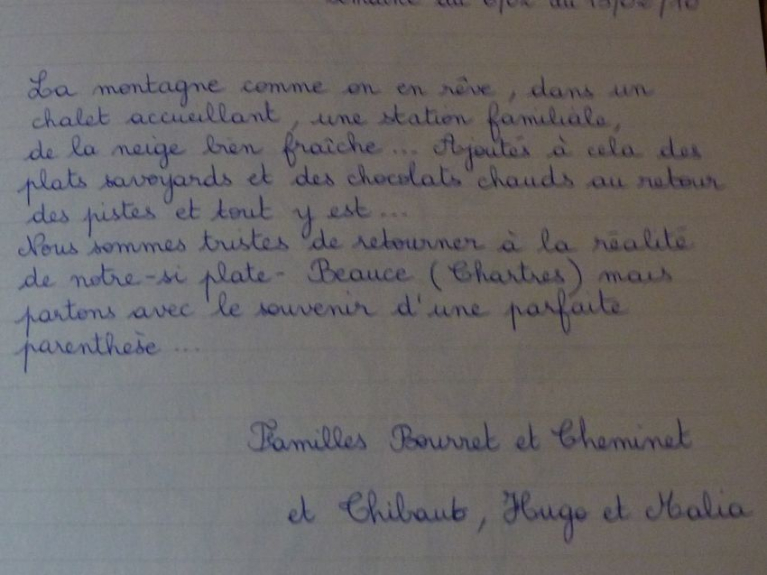 Semaine du 6/02 au 13/02/10
La montagne comme on en rêve, dans un
chalet accueillant, une station familiale,
de la neige bien fraîche... Ajoutés à cela des
plats savoyards et des chocolats chauds au retour
des pistes et tout y est...
Nous sommes tristes de retourner à la réalité
de notre-si plate- Beauce (Chartres) mais
partons avec le souvenir d'une parfaite
parenthèse...
Familles Bourret et Cheminet
et Thibaut, Hugo et Malia